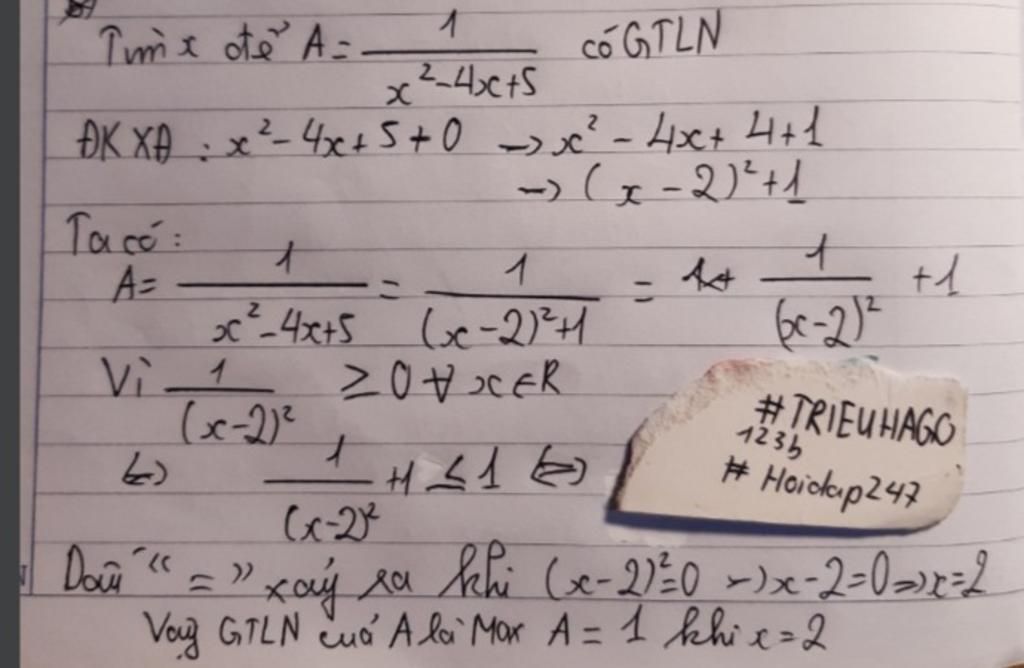 Tìm x để A = 1/(x²-4x+5) có GTLN
ĐKXĐ : x²-4x+5 ≠ 0 → x² - 4x + 4+1
→ (x - 2)²+1
Ta có :
A = 1/(x²-4x+5) = 1/((x-2)²+1) = 1/(x-2)² +1
Vì 1/(x-2)² ≥ 0 ∀ x ∈ R
⇔ 1/(x-2)² +1 ≤ 1 ⇔
#TRIEUHAGO
123b
# Hoidap247
Dấu "=" xảy ra khi (x-2)²=0 → x-2=0 ⇒ x=2
Vậy GTLN của A là Max A = 1 khi x = 2